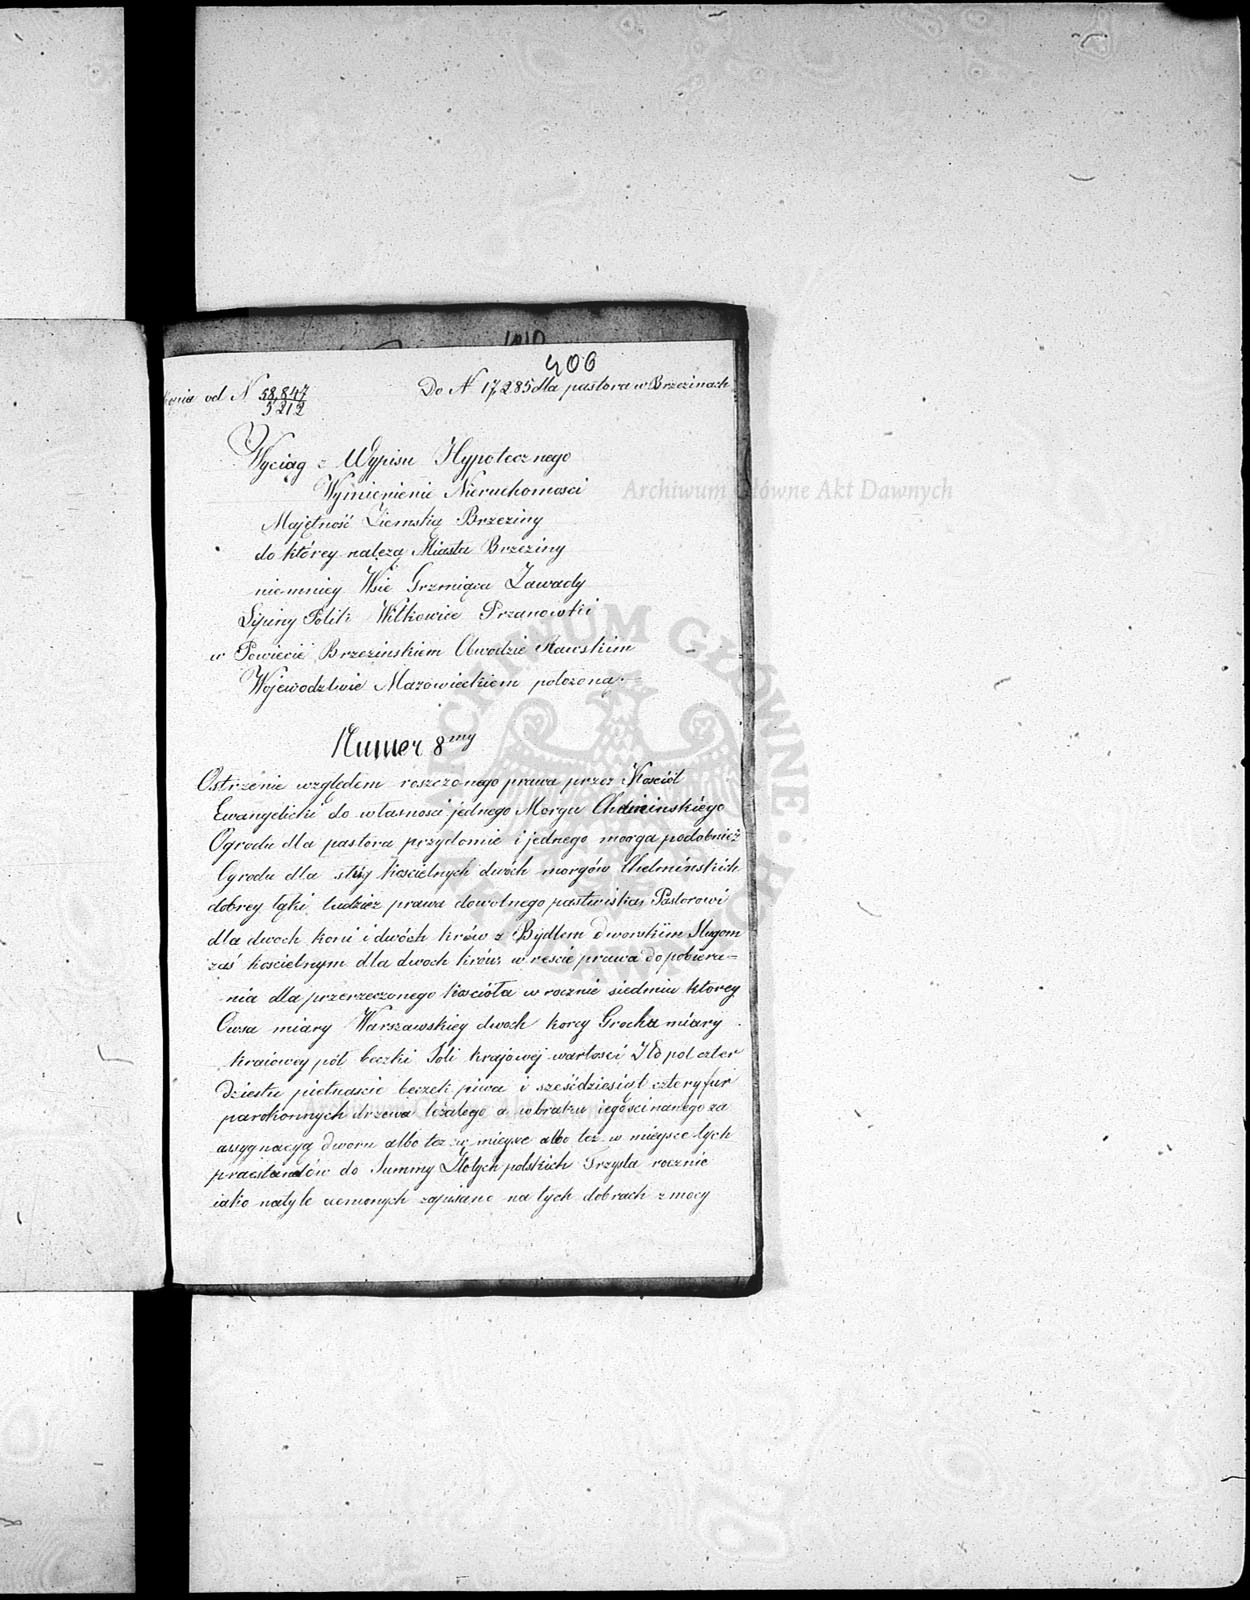 406
Kopia od N 58,847
5212
Do N 17,285 dla pastora w Brzezinach
Wyciąg z Wypisu Hypotecznego
Wymienienie Nieruchomości
Majętność Ziemska Brzeziny
do którey należą Miasta Brzeziny
niemniey Wsie Grzmiąca Zawady
Lipiny Polik Witkowice Przanowski
w Powiecie Brzezinskiem Obwodzie Rawskim
Wojewodztwie Mazowieckiem położona.
Numer 8my
Ostrzenie względem roszczonego prawa przez Kosciół
Ewangelicki do własności jednego Morgu Chełminskiego
Ogrodu dla pastora przydomie i jednego morga podobnież
Ogrodu dla sług kościelnych dwóch morgów Chełmińskich
dobrey łąki tudzież prawa dowolnego pastwiska Pastorowi
dla dwoch koni i dwóch krów z Bydłem dworskim Sługom
zaś kościelnym dla dwoch krów wreście prawa do pobiera=
nia dla przerzeczonego kościoła w rocznie siedmiu korcy
Owsa miary Warszawskiey dwoch korcy Grochu miary
kraiowey pół beczki Soli krajowej wartości Złp pol czter
dziestu pietnascie beczek piwa i sześćdziesiąt cztery fur
parokonnych drzewa leżałego a w braku iego ścinanego za
assygnacyą dworu albo też w mieysce albo też w miejsce tych
praestandów do Summy Złotych polskich Trzysta rocznie
iako na tyle cenionych zapisane na tych dobrach z mocy
Archiwum Główne Akt Dawnych
ARCHIWUM GŁÓWNE